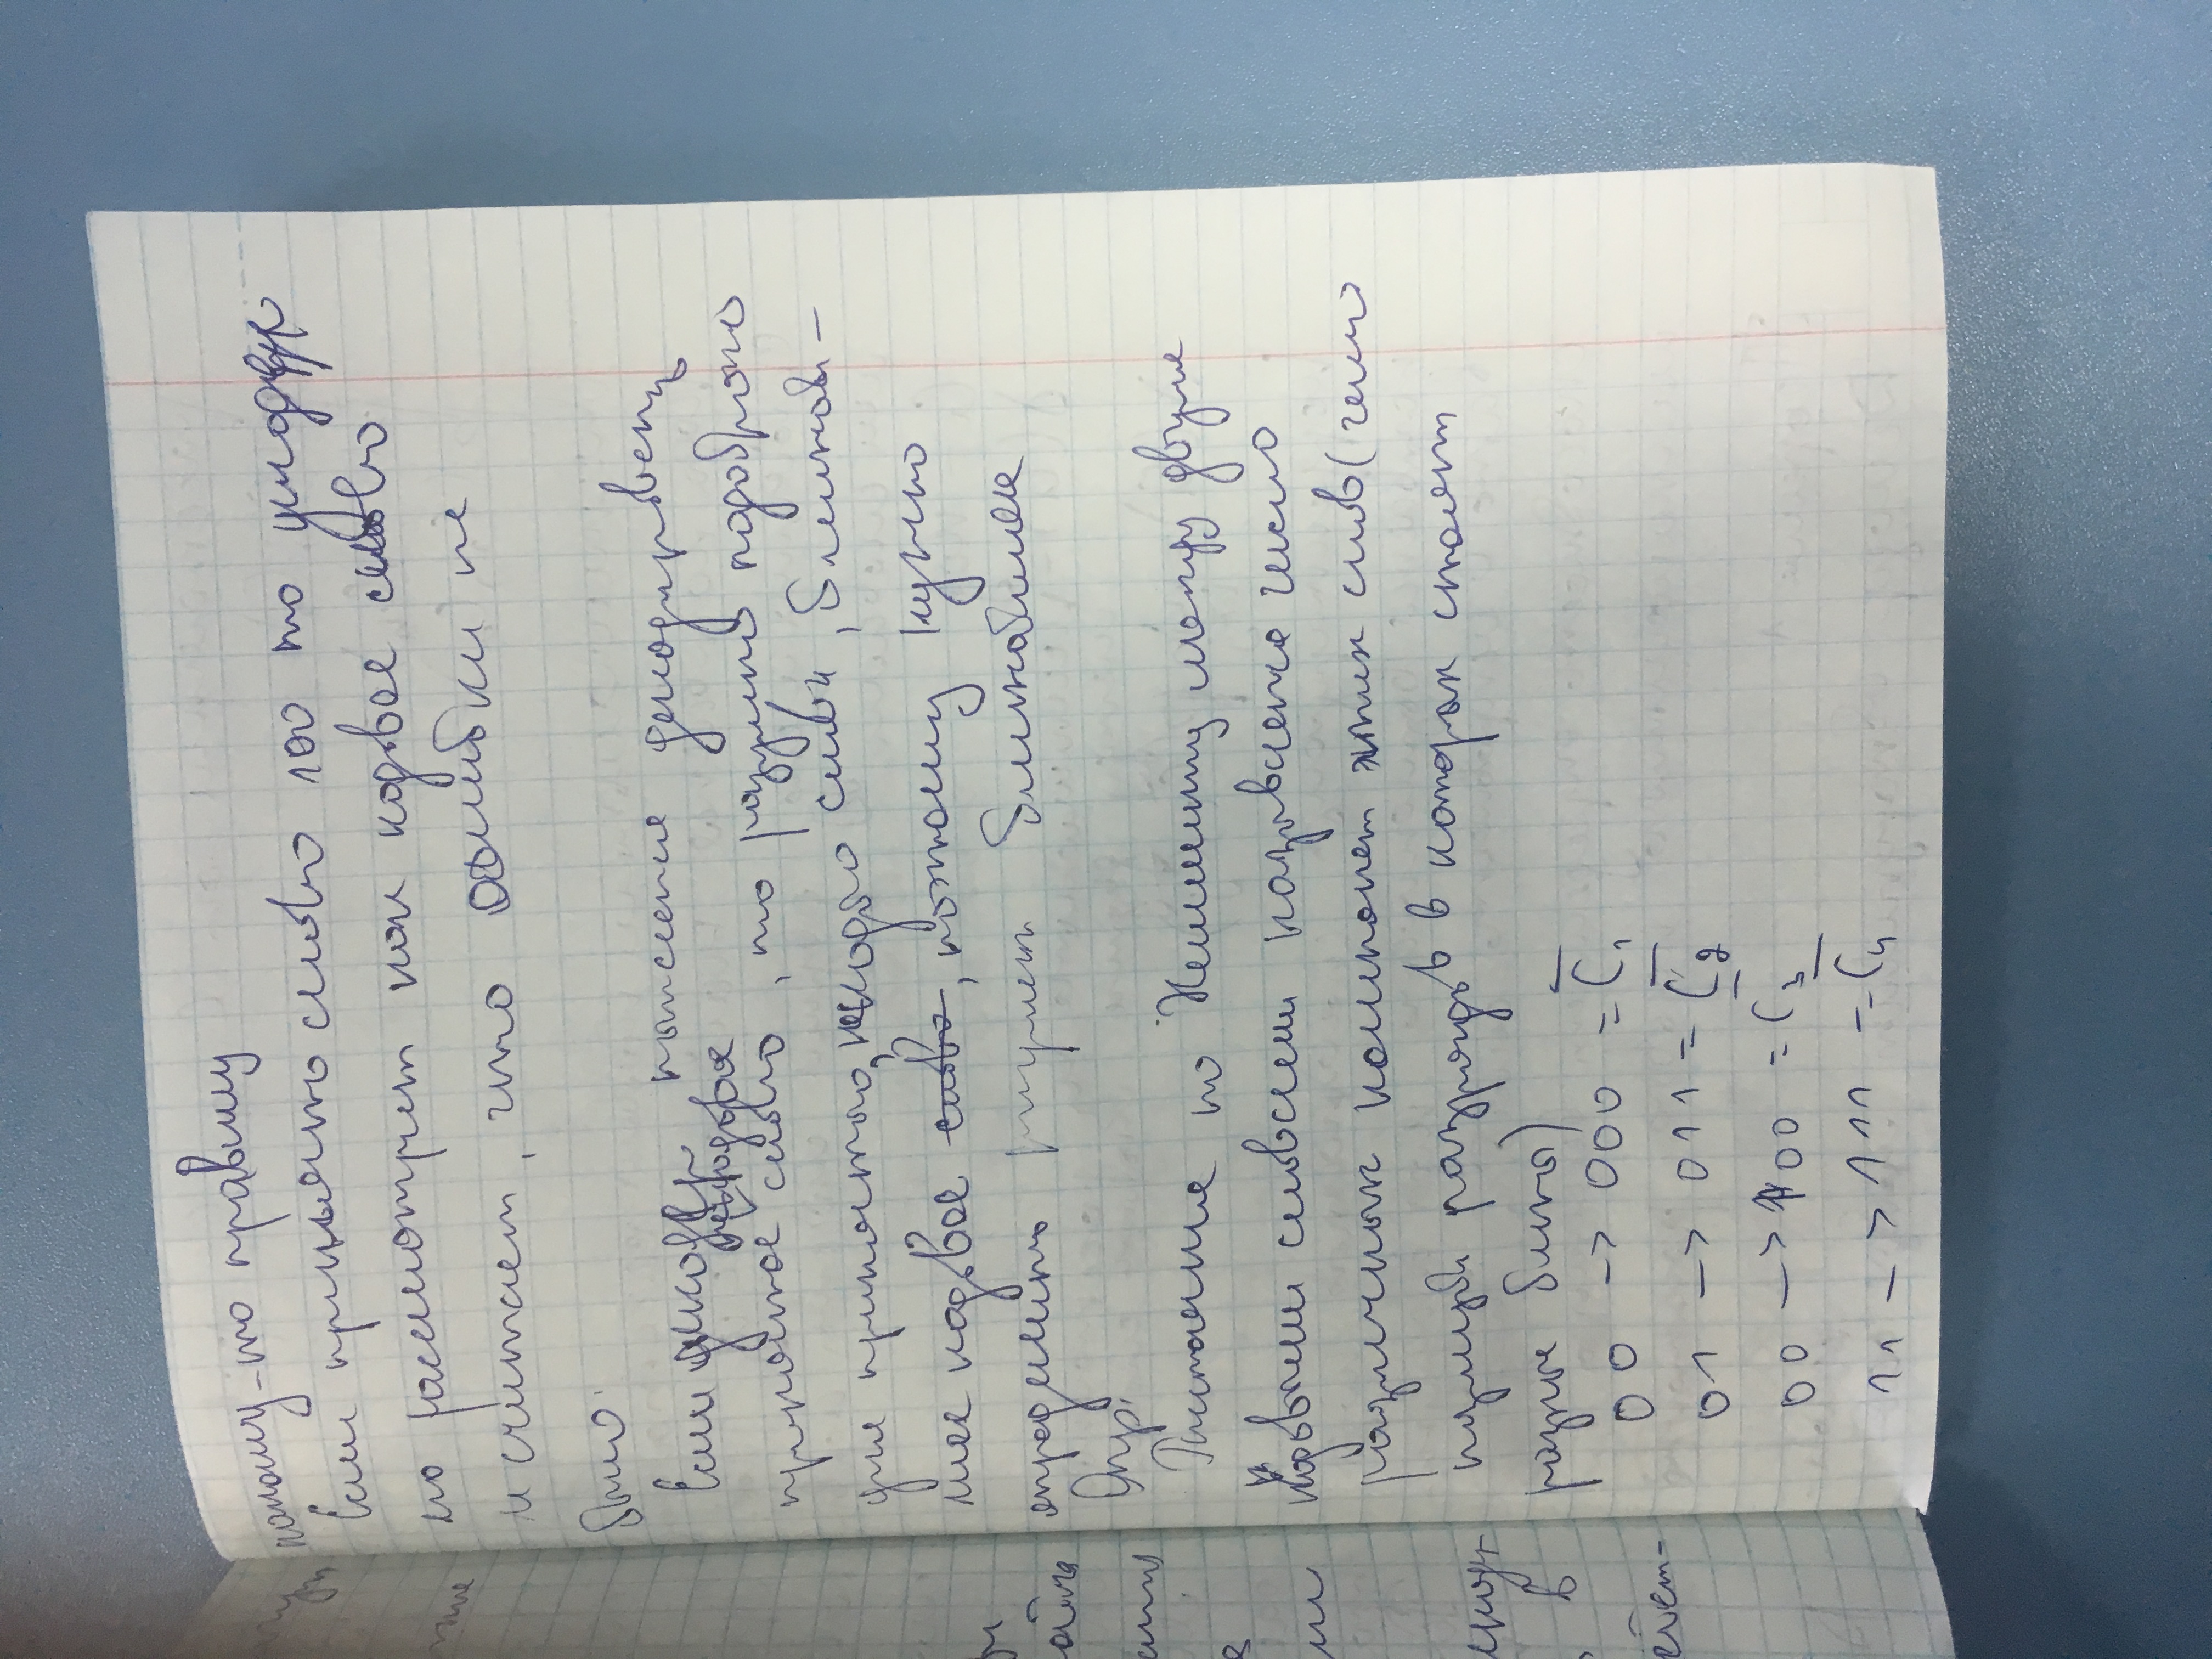 какому-то правилу
Если принято слово 100 то декодер
его рассмотрит как кодовое слово
и считает, что ошибки не
было.
Если декодер пытается декодировать
некодовое
принятое слово, то разумно подобрать
для принятого, некодового слова, ближай-
шее кодовое слово, поэтому нужно
определить ближайшее
Опр.
Расстояние по Хеммингу между двумя
кодовыми словами называется число
различных компонент этих слов (число
позиций разрядов в которых стоят
разные биты)
00 -> 000 = C̅₁
01 -> 011 = C̅₂
00 -> 100 = C̅₃
11 -> 111 = C̅₄